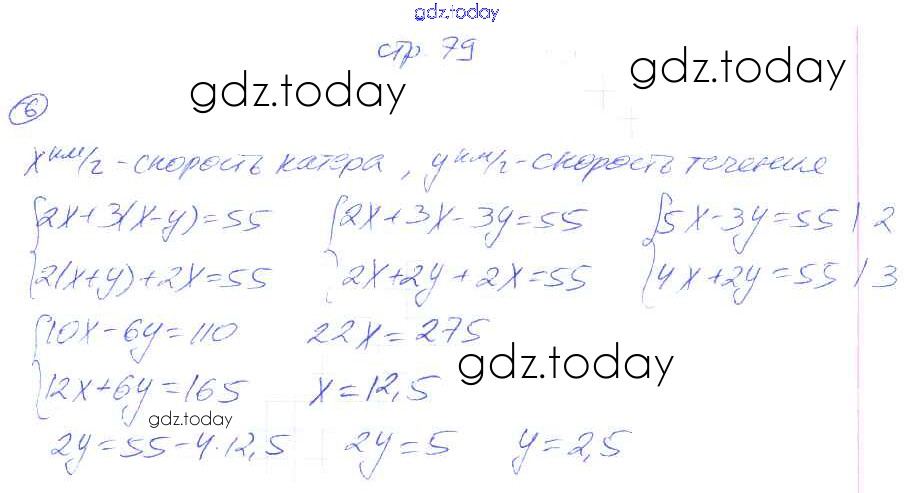 gdz.today
стр. 79
gdz.today gdz.today
6
x км/ч - скорость катера, y км/ч - скорость течения
{2x+3(x-y)=55 {2x+3x-3y=55 {5x-3y=55 | 2
{2(x+y)+2x=55 {2x+2y+2x=55 {4x+2y=55 | 3
{10x-6y=110 22x=275
gdz.today
{12x+6y=165 x=12,5
gdz.today
2y=55-4·12,5 2y=5 y=2,5